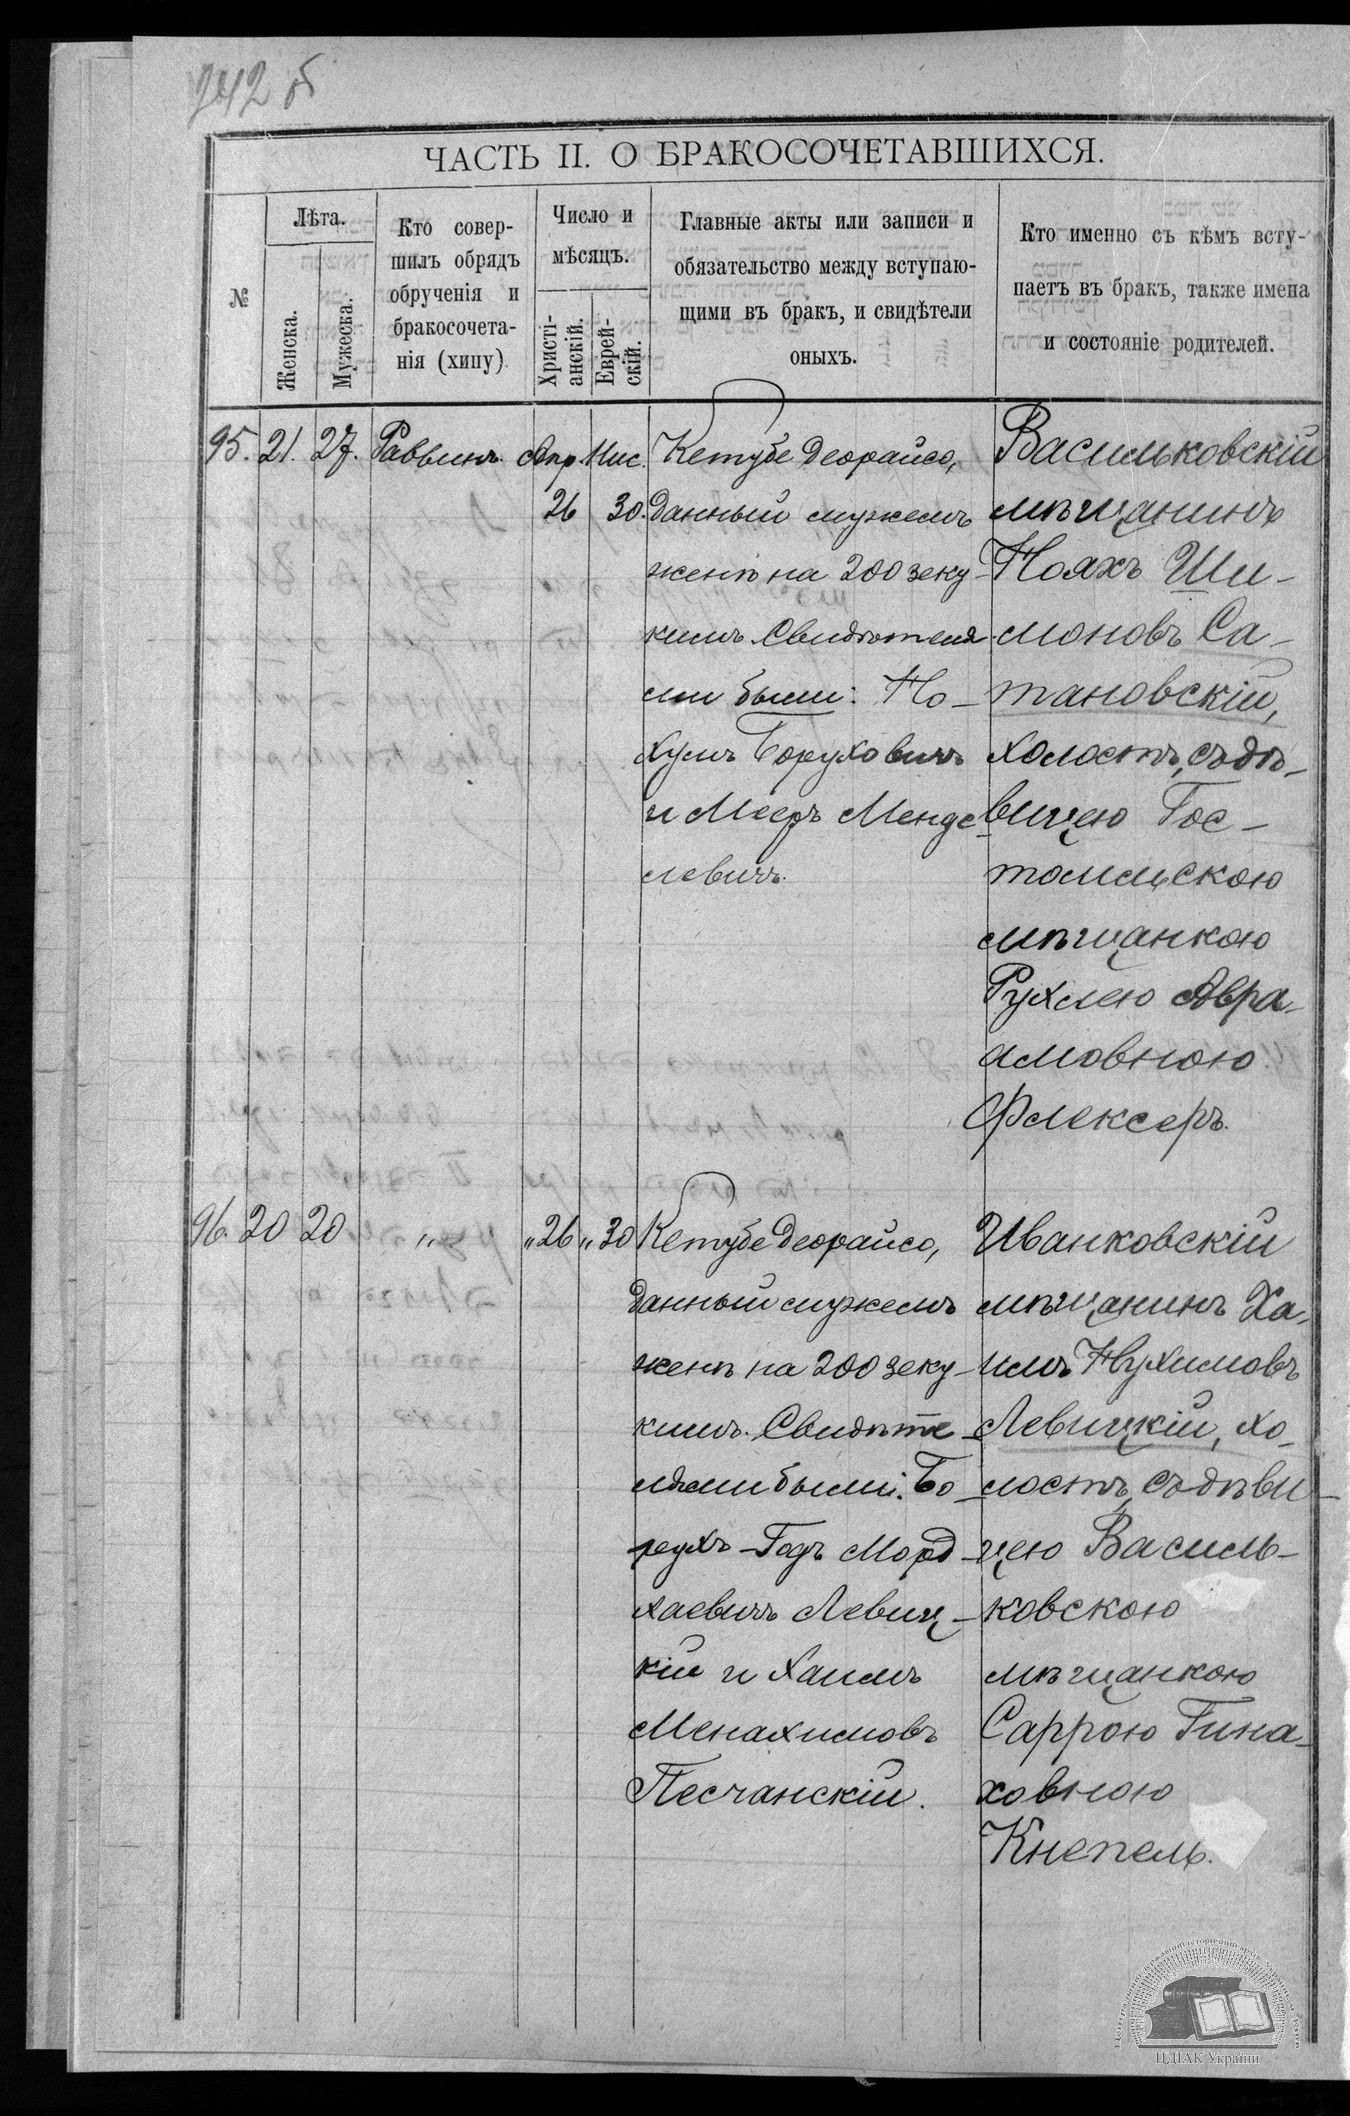 242 б
ЧАСТЬ II. О БРАКОСОЧЕТАВШИХСЯ.
№
Лѣта.
Женска.
Мужеска.
Кто совер-
шилъ обрядъ
обрученія и
бракосочета-
нія (хипу)
Число и
мѣсяцъ.
Христі-
анскій.
Еврей-
скій.
Главные акты или записи и
обязательство между вступаю-
щими въ бракъ, и свидѣтели
оныхъ.
Кто именно съ кѣмъ всту-
паетъ въ бракъ, также имена
и состояніе родителей.
95. 21. 27. Раввинъ. Апр. Нис.
26 30.
Кетубе Деорайсо,
данный мужемъ
женѣ на 200 зеку-
кимъ. Свидѣтеля-
ми были: Но-
хумъ Боруховичъ
и Мееръ Менде-
левичъ.
Васильковскій
мѣщанинъ
Нояхъ Ши-
моновъ Са-
тановскій,
холостъ, съ дѣ-
вицею Гос-
томльскою
мѣщанкою
Рухлею Авра-
амовною
Флексеръ.
96. 20 20 „ „ 26 „ 30
Кетубе Деорайсо,
данный мужемъ
женѣ на 200 зеку-
кимъ. Свидѣте-
лями были: Бо-
рухъ-Годъ Морд-
хаевичъ Левиц-
кій и Хаимъ
Менахимовъ
Песчанскій.
Иванковскій
мѣщанинъ Ха-
имъ Нухимовъ
Левицкій, хо-
лостъ, съ дѣви-
цею Василь-
ковскою
мѣщанкою
Саррою Гина-
ховною
Кнепель.
ЦДІАК України